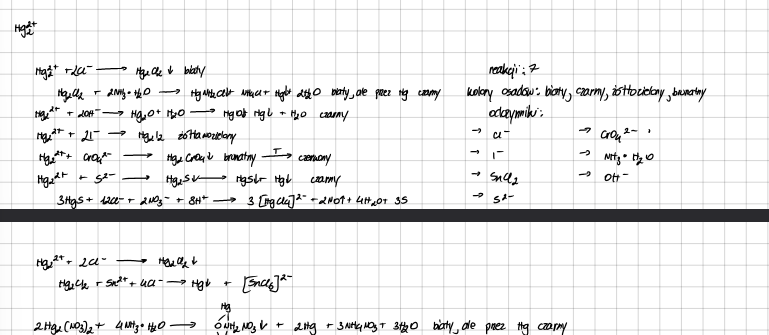 Hg₂²⁺
Hg₂²⁺ + 2Cl⁻ ⟶ Hg₂Cl₂ ↓ biały
Hg₂Cl₂ + 2NH₃·H₂O ⟶ HgNH₂Cl↓ + NH₄Cl + Hg↓ + 2H₂O biały, ale przez Hg czarny
Hg₂²⁺ + 2OH⁻ ⟶ Hg₂O + H₂O ⟶ HgO↓ Hg↓ + H₂O czarny
Hg₂²⁺ + 2I⁻ ⟶ Hg₂I₂ żółtawozielony
Hg₂²⁺ + CrO₄²⁻ ⟶ Hg₂CrO₄↓ brunatny ⟶ᵀ czerwony
Hg₂²⁺ + S²⁻ ⟶ Hg₂S↓ ⟶ HgS↓ + Hg↓ czarny
3HgS + 12Cl⁻ + 2NO₃⁻ + 8H⁺ ⟶ 3 [HgCl₄]²⁻ + 2NO↑ + 4H₂O + 3S
reakcji: 7
kolory osadów: biały, czarny, żółtozielony, brunatny
odczynniki:
→ Cl⁻ → CrO₄²⁻
→ I⁻ → NH₃·H₂O
→ SnCl₂ → OH⁻
→ S²⁻
Hg₂²⁺ + 2Cl⁻ ⟶ Hg₂Cl₂ ↓
Hg₂Cl₂ + Sn²⁺ + 4Cl⁻ ⟶ Hg↓ + [SnCl₆]²⁻
Hg
2Hg₂(NO₃)₂ + 4NH₃·H₂O ⟶ O NH₂NO₃↓ + 2Hg + 3NH₄NO₃ + 3H₂O biały, ale przez Hg czarny